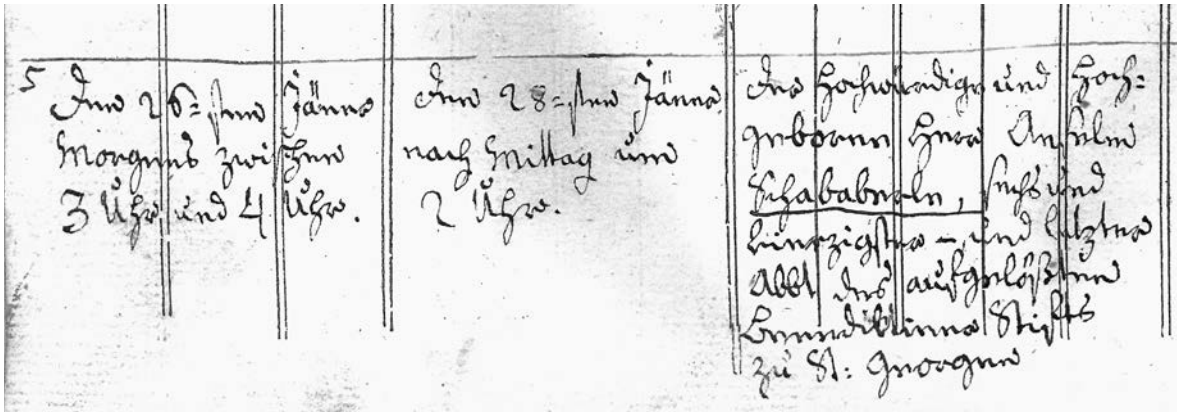 5
Den 26=sten Jänner
Morgens zwischen
3 Uhr und 4 Uhr.
Den 28=sten Jänner
nach Mittag um
2 Uhr.
Der Hochwürdige und Hoch=
geborne Herr Anselm
Schababerle, sechs und
vierzigster – und letzter
Abbt des aufgelößten
Benediktiner Stifts
zu St: Georgen